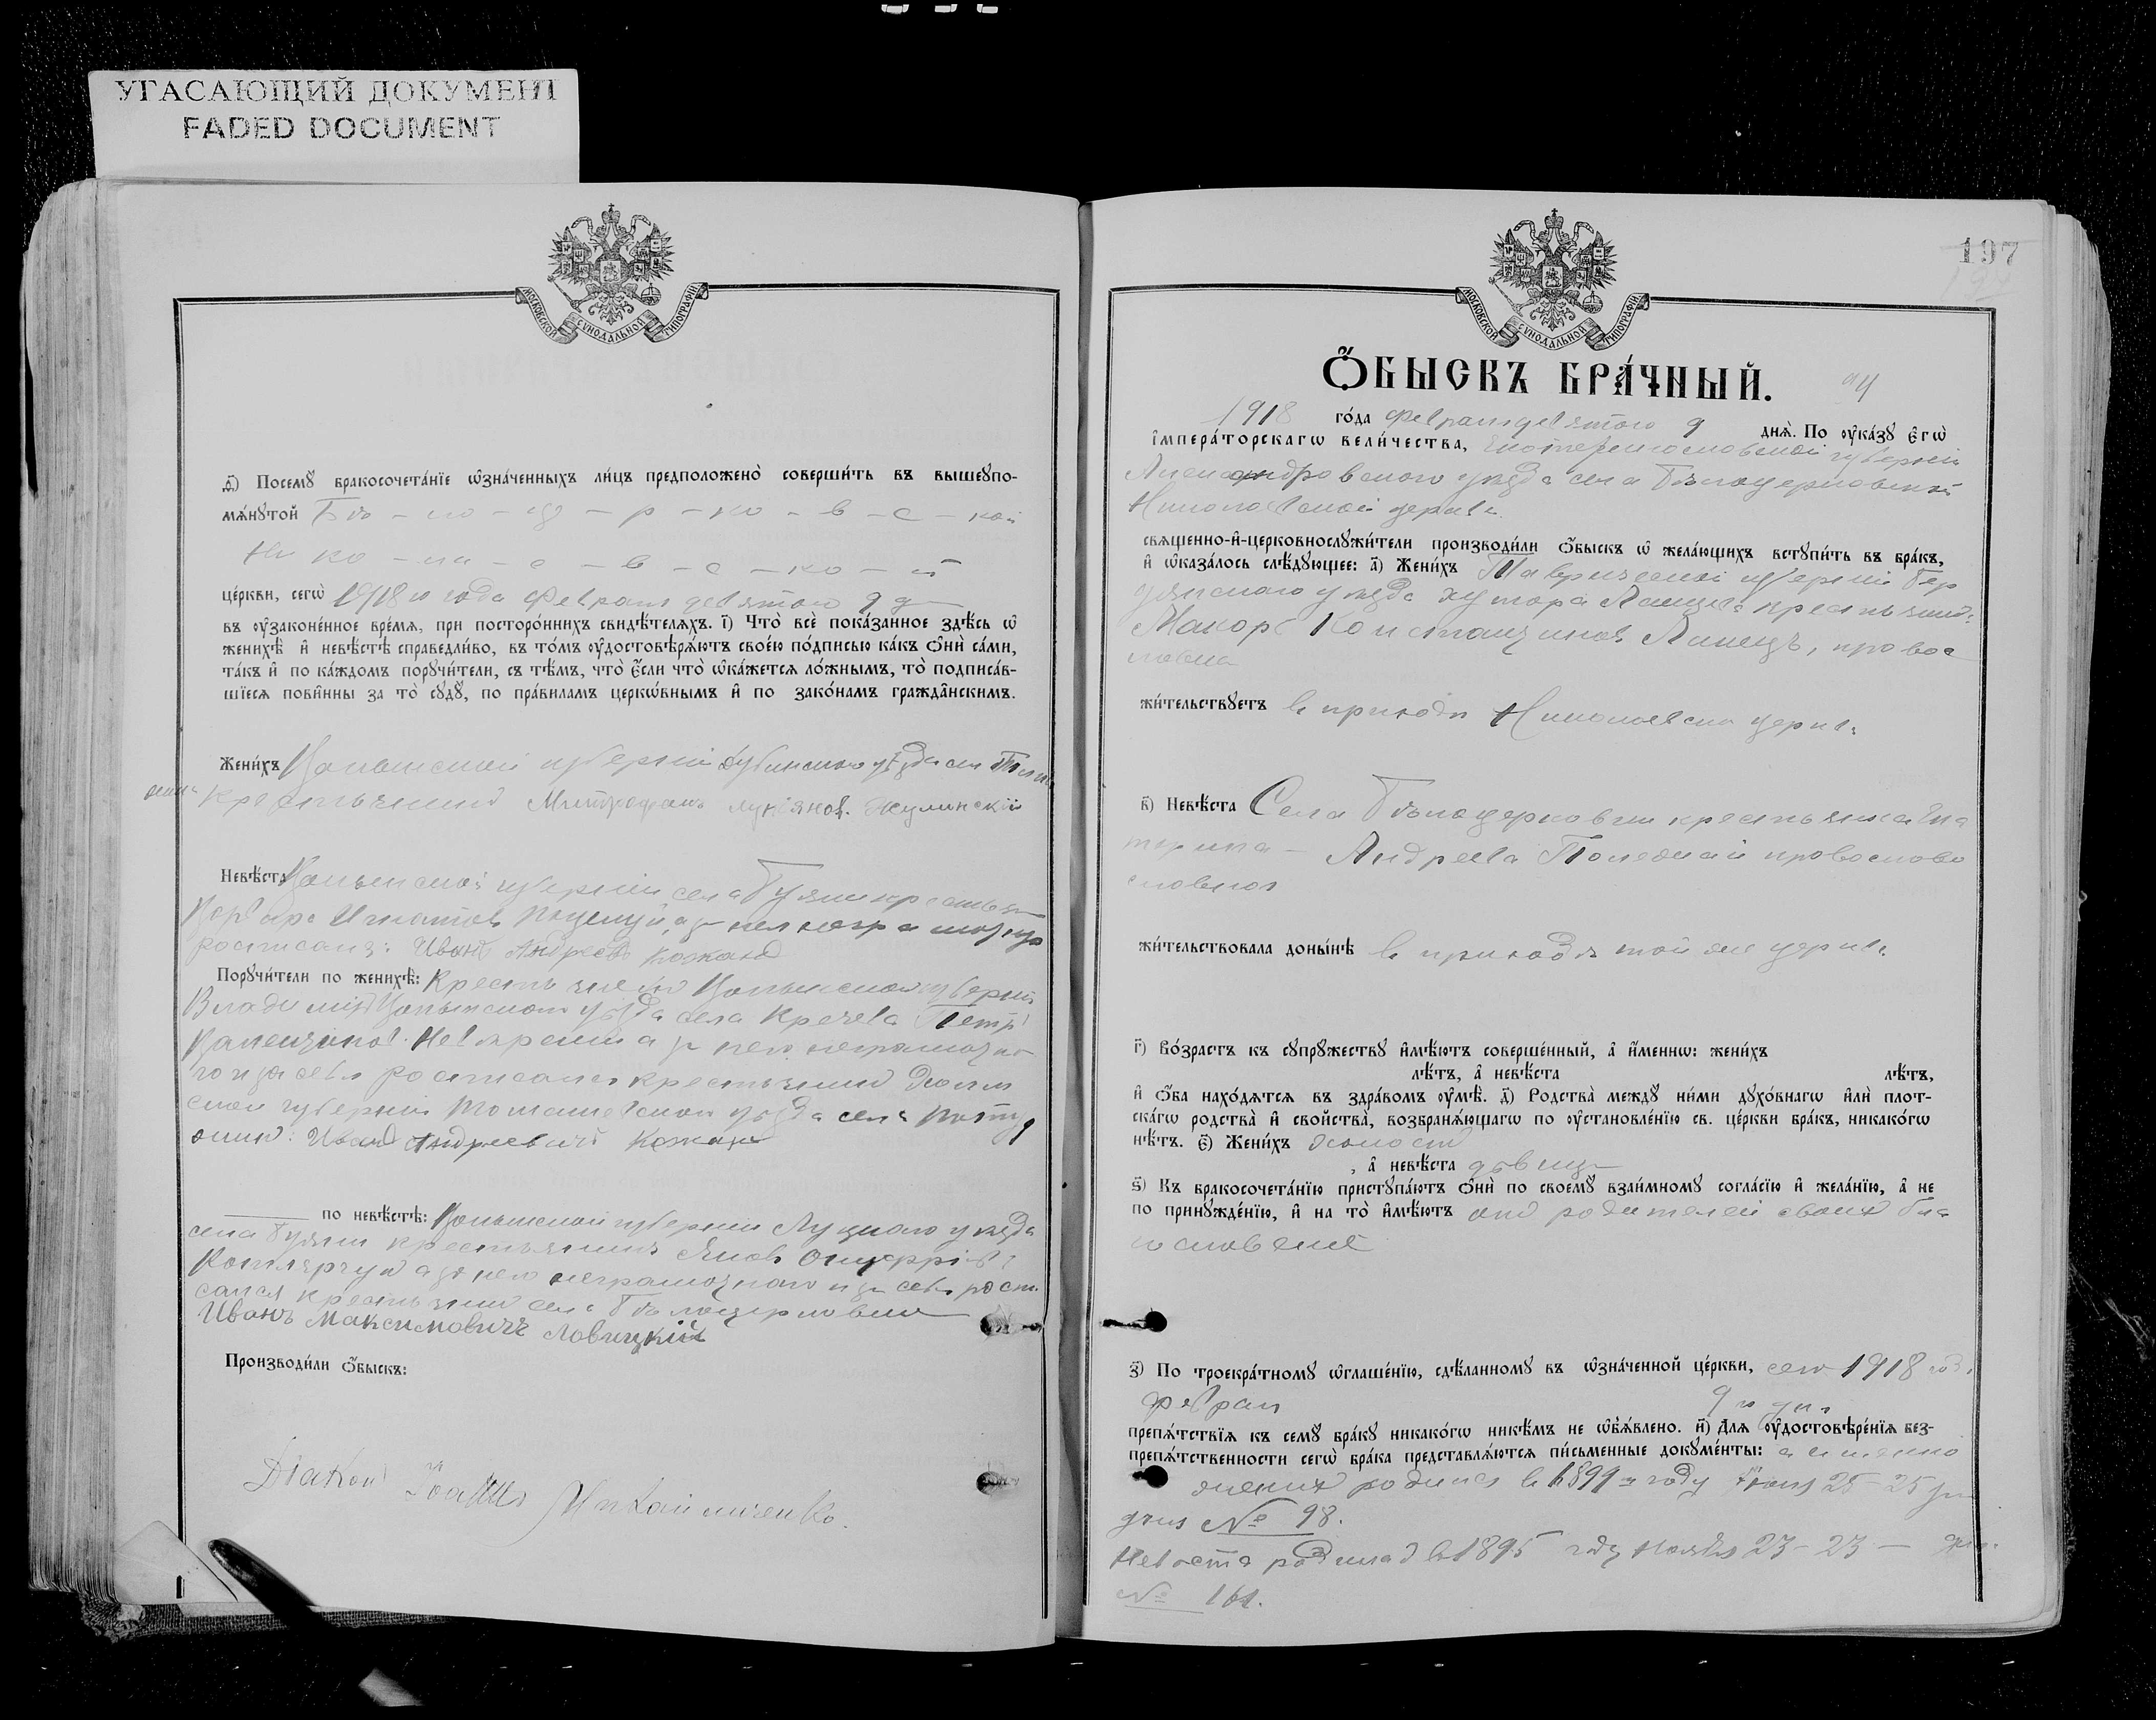 УГАСАЮЩИЙ ДОКУМЕНТ
FADED DOCUMENT
МОСКОВСКОЙ СѴНОДАЛЬНОЙ ТИПОГРАФІИ
ѳ҃) Посемꙋ̀ бракосочета́нїе ѡ҆зна́ченныхъ ли́цъ предположено̀ соверши́ть въ вышеꙋпо-
мѧ́нꙋтой Бѣ - ло - це - р - ко - в - с - кой
Ни ко - ла - е - в - с - ко - й
це́ркви, сегѡ̀ 1918 го года Феврал девятого 9 д
въ ᲂу҆законе́нное вре́мѧ, при посторо́ннихъ свидѣ́телѧхъ. і҃) Что̀ всѐ пока́занное здѣ́сь ѡ҆
женихѣ̀ и҆ невѣ́стѣ справедли́во, въ то́мъ ᲂу҆достовѣрѧ́ютъ свое́ю по́дписью ка́къ ѻ҆нѝ са́ми,
та́къ и҆ по ка́ждомъ порꙋчи́тели, съ тѣ́мъ, что̀ є҆́сли что̀ ѡ҆ка́жетсѧ ло́жнымъ, то̀ подписа́в-
шїесѧ пови́нны за то̀ сꙋдꙋ̀, по пра́виламъ церкѡ́внымъ и҆ по зако́намъ гражда̑нскимъ.
Жени́хъ Волынской губернии Дубинского уѣзда села
крестьянинъ Митрофанъ Лукіянов. Жулинскій
Невѣ́ста Волынской губернии села крестьян
Варвара Игнатова а за нея неграмотную
росписалъ: Иванъ Андреевъ Кожанъ
Порꙋчи́тели по женихѣ̀: Крестьянинъ Волынской губернии
Владимірволынского уѣзда села Кречева Петръ
а за него неграмотно
го и за себя росписался крестьянинъ Холм
ской губернии Томашевского уѣзда села
Иванъ Андреевичъ Кожанъ
по невѣ́стѣ: Волынской губернии Луцкого уѣзда
села крестьянинъ Яковъ
а за него неграмотного и за себя роспи
сался крестьянинъ села Бѣлоцерковки
Иванъ Максимовичъ Ловицкій
Производи́ли ѻ҆́быскъ:
Діаконъ Іоаннъ
197
МОСКОВСКОЙ СѴНОДАЛЬНОЙ ТИПОГРАФІИ
Ѻ҆́БЫСКЪ БРА́ЧНЫЙ.
94
1918 го́да Феврал девятого 9 днѧ̀. По ᲂу҆ка́зꙋ є҆гѡ̀
і҆мпера́торскагѡ вели́чества, Екатеринославской губернии
Александровского уѣзда села Бѣлоцерковки
Николаевской церкви
свѧщенно-и҆-церковнослꙋжи́тели производи́ли ѻ҆́быскъ ѡ҆ жела́ющихъ встꙋпи́ть въ бра́къ,
и҆ ѡ҆каза́лось слѣ́дꙋющее: а҃) Жени́хъ Таврической губернии Бер
дянского уѣзда хутора крестьянин
Макаръ Константиновъ Липецъ, правос
лавна
жи́тельствꙋетъ въ приходѣ Николаевской церкви
в҃) Невѣ́ста Села Бѣлоцерковки крестьянка Ека
терина - Андреева православо
славною
жи́тельствовала доны́нѣ въ приходѣ той же церкви
г҃) Во́зрастъ къ сꙋпрꙋ́жествꙋ и҆мѣ́ютъ соверше́нный, а҆ и҆́меннѡ: жени́хъ
лѣ́тъ, а҆ невѣ́ста лѣ́тъ,
и҆ ѻ҆́ба нахо́дѧтсѧ въ здра́вомъ ᲂу҆мѣ̀. д҃) Родства̀ междꙋ̀ ни́ми дꙋхо́внагѡ и҆лѝ плот-
ска́гѡ родства̀ и҆ сво́йства̀, возбранѧ́ющагѡ по ᲂу҆становле́нїю св. це́ркви бра́къ, никако́гѡ
нѣ́тъ. є҃) Жени́хъ холостъ
, а҆ невѣ́ста дѣвица
ѕ҃) Къ бракосочета́нїю пристꙋпа́ютъ ѻ҆нѝ по своемꙋ̀ взаи́мномꙋ согла́сїю и҆ жела́нїю, а҆ не
по принꙋжде́нїю, и҆ на то̀ и҆мѣ́ютъ отъ родителей своихъ бла
гословение
з҃) По троекра́тномꙋ ѡ҆глаше́нїю, сдѣ́ланномꙋ въ ѡ҆зна́ченной це́ркви, сего 1918 года
феврал 9 го дня
препѧ́тствїѧ къ семꙋ̀ бра́кꙋ никако́гѡ никѣ́мъ не ѡ҆б̾ѧ́влено. и҃) Длѧ̀ ᲂу҆достовѣре́нїѧ без-
препѧ́тственности сегѡ̀ бра́ка представлѧ́ютсѧ пи́сьменные докꙋме́нты: а именно
жених родился въ 1899 м году 25 - 25 дня
№ 98.
Невѣста родилась в 1895 году Ноября 23 - 23 — дня
№ 161.